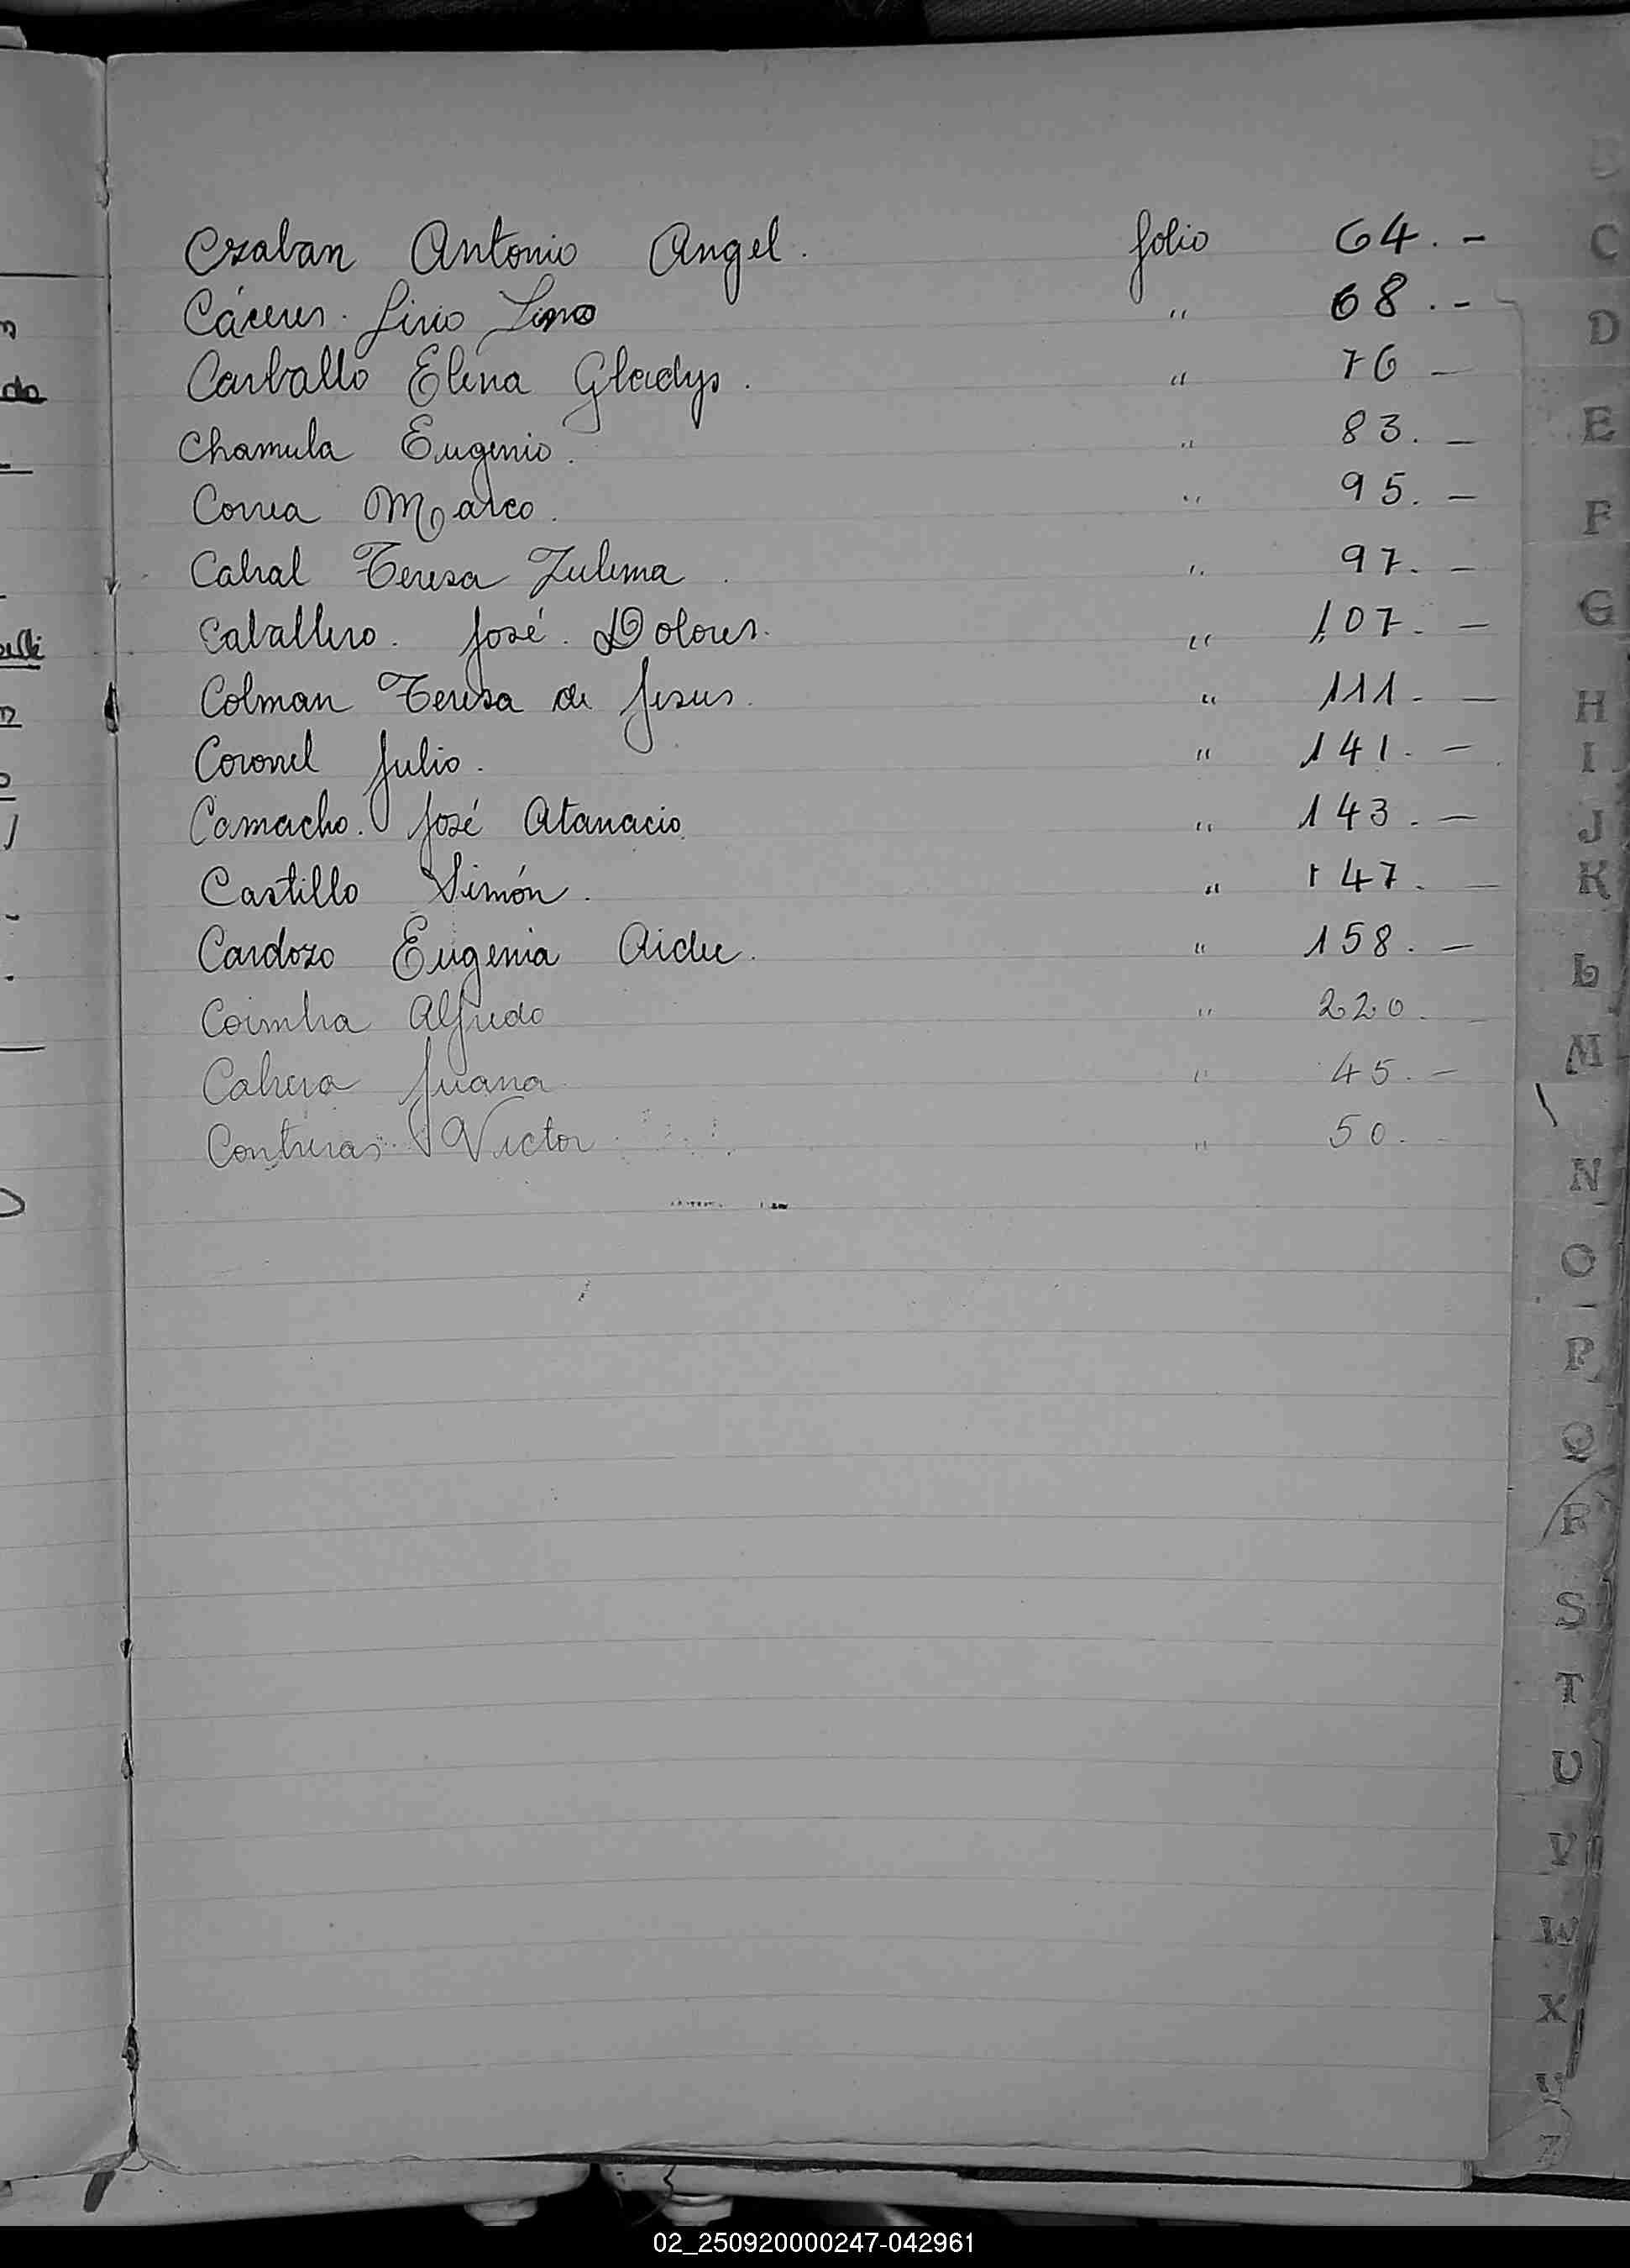 Czaban Antonio Angel. folio 64.-
Cáceres. Lino " 68.-
Carballo Elena Gladys. " 76 -
Chamula Eugenio. " 83.-
Correa Marco. " 95.-
Cabral Teresa Zulema " 97.-
Caballero. José. Dolores. " 107.-
Colman Teresa de Jesus. " 111.-
Coronel Julio. " 141.-
Camacho. José Atanacio. " 143.-
Castillo Simón. " 147.-
Cardozo Eugenia Aidee. " 158.-
Coimbra Alfredo " 220.-
Cabrera Juana " 45.-
Contreras Victor " 50.-
C
D
E
F
G
H
I
J
K
L
M
N
O
P
Q
R
S
T
U
V
W
X
Z
02_250920000247-042961